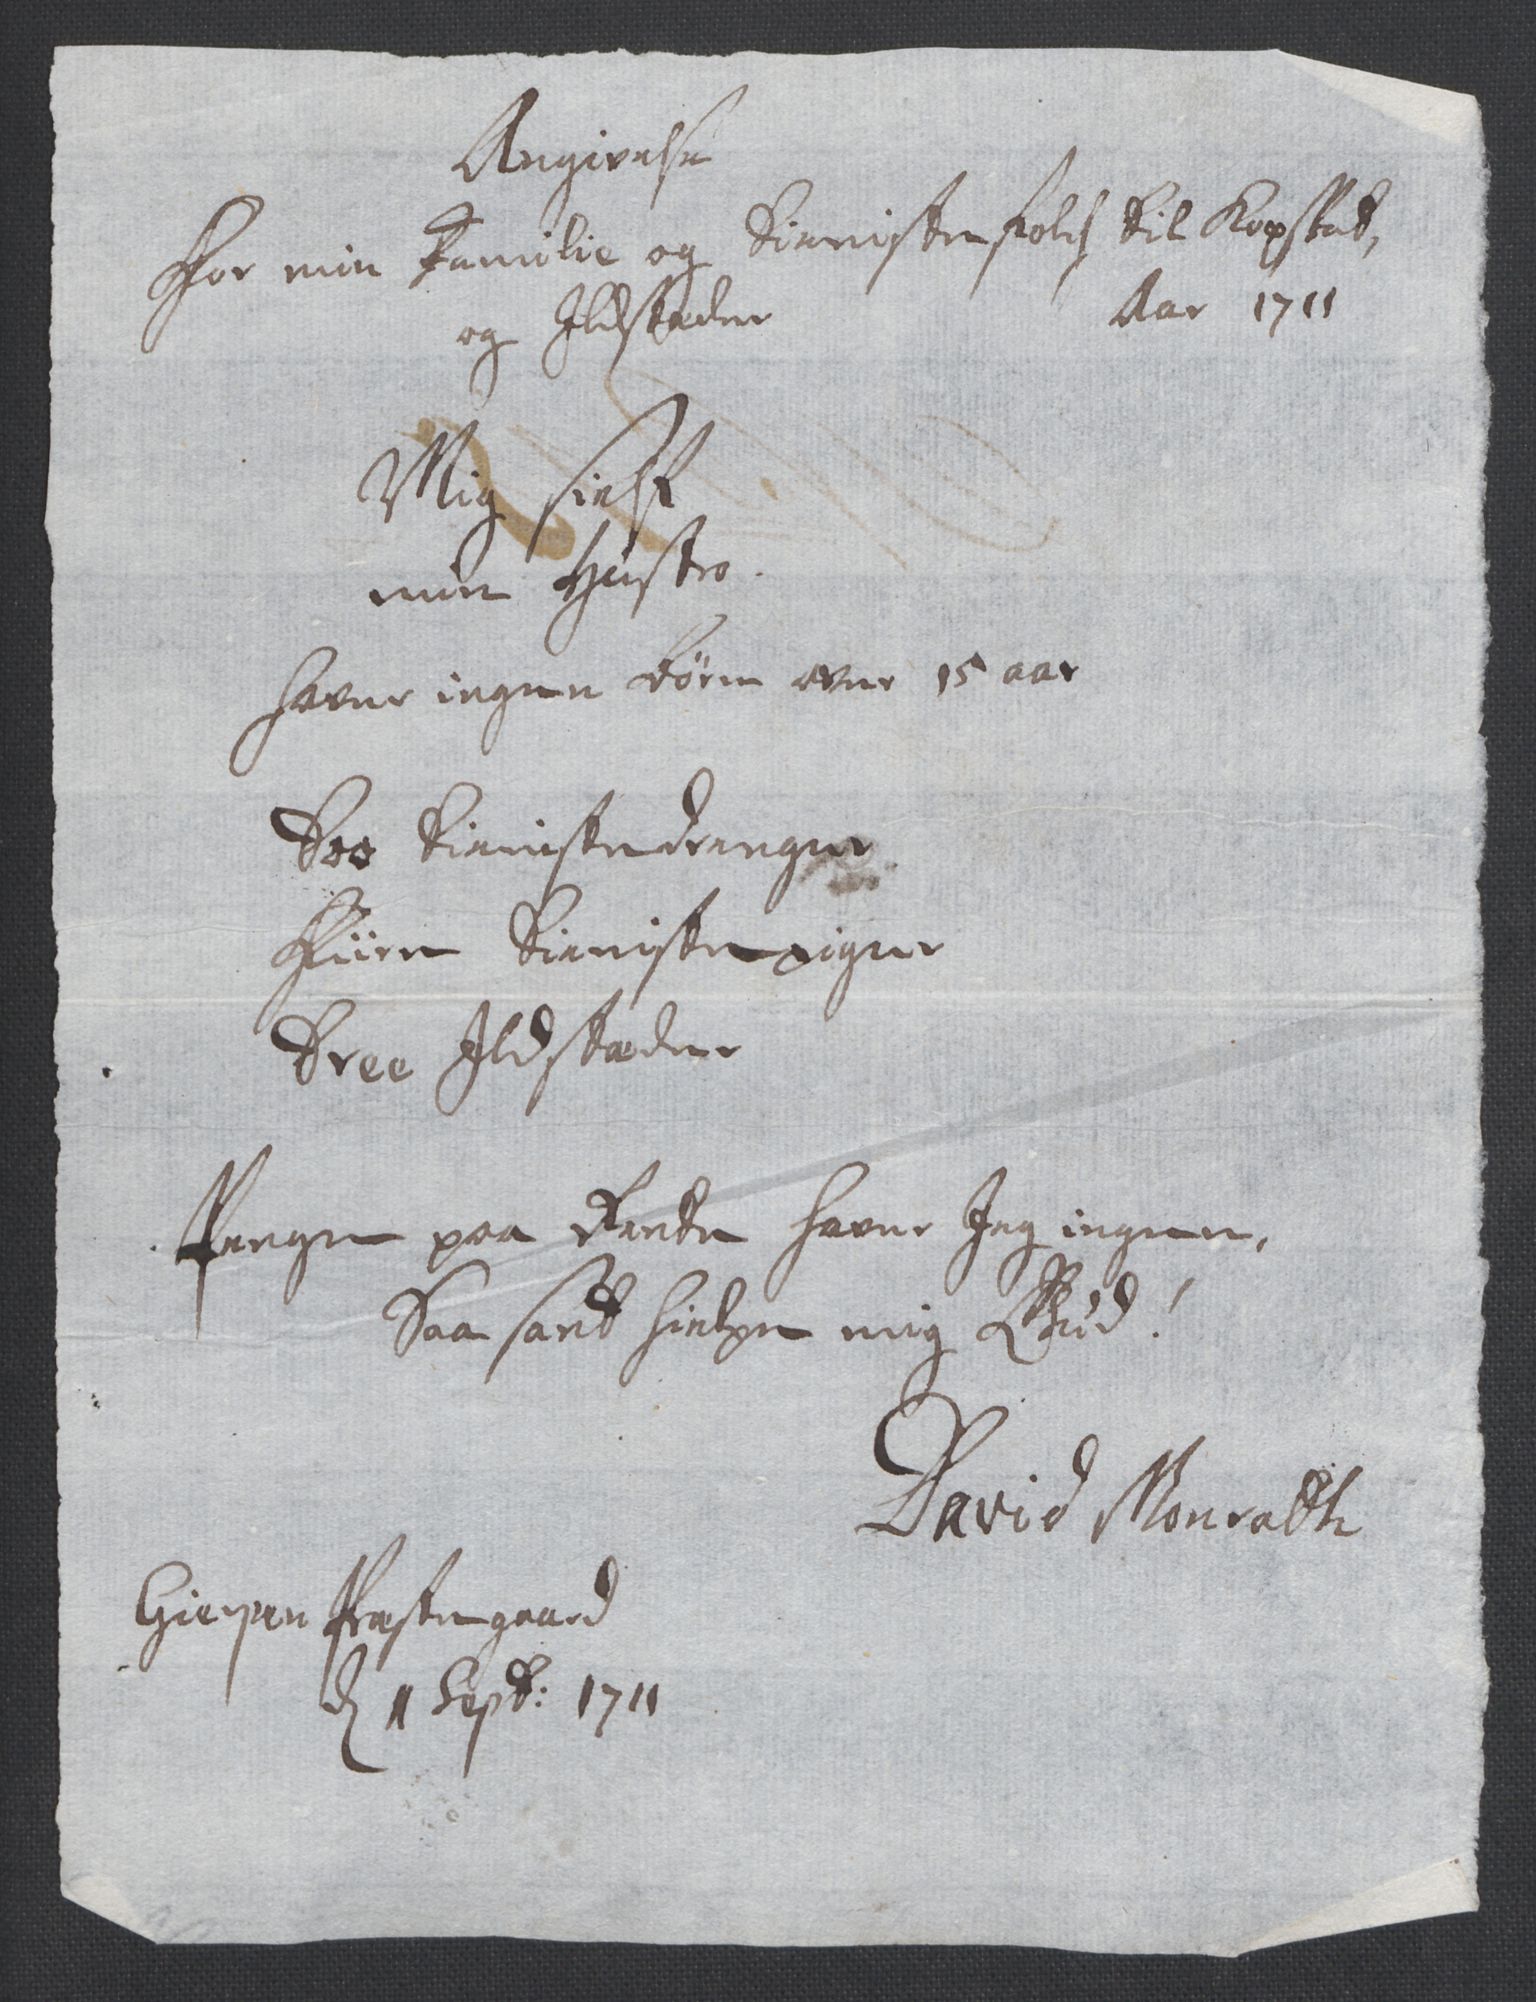 Angivelse
For min Familie og Tienistefolch til Kopskat,
og Ildstæder Aar 1711
Mig sielf
min Hustro.
hafver ingen børn ofver 15 aar
Too Tienistedrenger
Fiire Tienistepiger
Tree Ildstæder
Penge paa Rente hafver Jeg ingen,
Saa sant hielpe mig Gud!
David Monrath
Gierpen Præstegaard
d 11 Sept: 1711